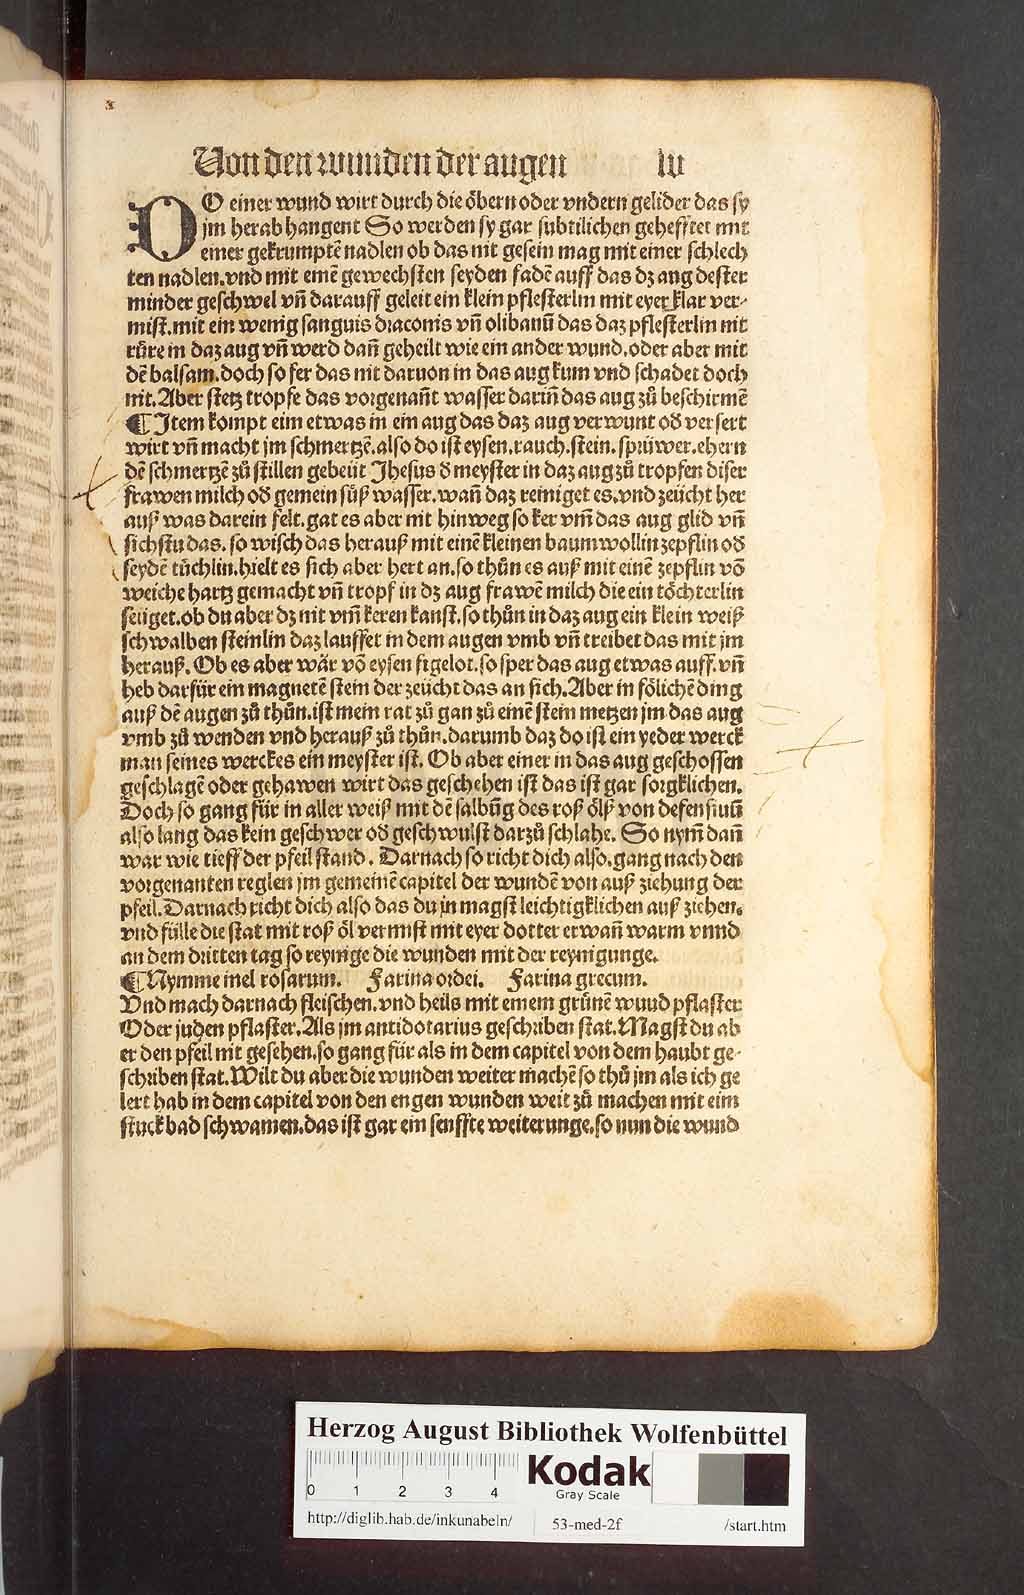 Von den wunden der augen lv
DO einer wund wirt durch die öbern oder vndern gelider das sy
jm herab hangent So werden sy gar subtilichen gehefftet mit
einer gekrumptē nadlen ob das nit gesein mag mit einer schlech
ten nadlen. vnd mit einē gewechsten seyden fadē auff das dz aug dester
minder geschwel vñ darauff geleit ein klein pflesterlin mit eyer klar ver⸗
mist. mit ein wenig sanguis draconis vñ olibanū das daz pflesterlin nit
růre in daz aug vñ werd dañ geheilt wie ein ander wund. oder aber mit
dē balsam. doch so fer das nit daruon in das aug kum vnd schadet doch
nit. Aber stetz tropfe das vorgenañt wasser dariñ das aug zů beschirmē
¶ Item kompt eim etwas in ein aug das daz aug verwunt oď versert
wirt vñ macht jm schmertzē. also do ist eysen. rauch. stein. sprüwer. ehern
dē schmertzē zů stillen gebeüt Jhesus ď meyster in daz aug zů tropfen diser
frawen milch oď gemein süß wasser. wañ daz reiniget es. vnd zeücht her
auß was darein felt. gat es aber nit hinweg so ker vm̄ das aug glid vñ
sichstu das. so wisch das herauß mit einē kleinen baumwollin zepflin oď
seydē tůchlin. hielt es sich aber hert an. so thůn es auß mit einē zepflin vō
weiche hartz gemacht vñ tropf in dz aug frawē milch die ein töchterlin
seüget. ob du aber dz nit vm̄ keren kanst. so thůn in daz aug ein klein weiß
schwalben steinlin daz lauffet in dem augen vmb vñ treibet das mit jm
herauß. Ob es aber wär vō eysen figelot. so sper das aug etwas auff. vñ
heb darfür ein magnetē stein der zeücht das an sich. Aber in sölichē ding
auß dē augen zů thůn. ist mein rat zů gan zů einē stein metzen jm das aug
vmb zů wenden vnd herauß zů thůn. darumb daz do ist ein yeder werck
man seines werckes ein meyster ist. Ob aber einer in das aug geschossen
geschlagē oder gehawen wirt das geschehen ist das ist gar sorgklichen.
Doch so gang für in aller weiß mit dē salbūg des roß ölß von defensiuū
also lang das kein geschwer oď geschwulst darzů schlahe. So nym̄ dañ
war wie tieff der pfeil stand. Darnach so richt dich also. gang nach den
vorgenanten reglen jm gemeinē capitel der wundē von auß ziehung der
pfeil. Darnach richt dich also das du jn magst leichtigklichen auß ziehen.
vnd fülle die stat mit roß öl vermist mit eyer dotter erwañ warm vnnd
an dem dritten tag so reynige die wunden mit der reynigunge.
¶ Nymme mel rosarum. Farina ordei. Farina grecum.
Vnd mach darnach fleischen. vnd heils mit einem grůnē wuud pflaster
Oder juden pflaster. Als jm antidotarius geschriben stat. Magst du ab
er den pfeil nit gesehen. so gang für als in dem capitel von dem haubt ge⸗
schriben stat. Wilt du aber die wunden weiter machē so thů jm als ich ge
lert hab in dem capitel von den engen wunden weit zů machen mit eim
stuck bad schwamen. das ist gar ein senffte weiterunge. so nun die wund
Herzog August Bibliothek Wolfenbüttel
0 1 2 3 4
Kodak
Gray Scale
http://diglib.hab.de/inkunabeln/ 53-med-2f /start.htm